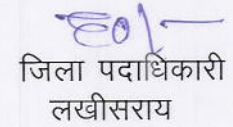 ह0/-
जिला पदाधिकारी
लखीसराय